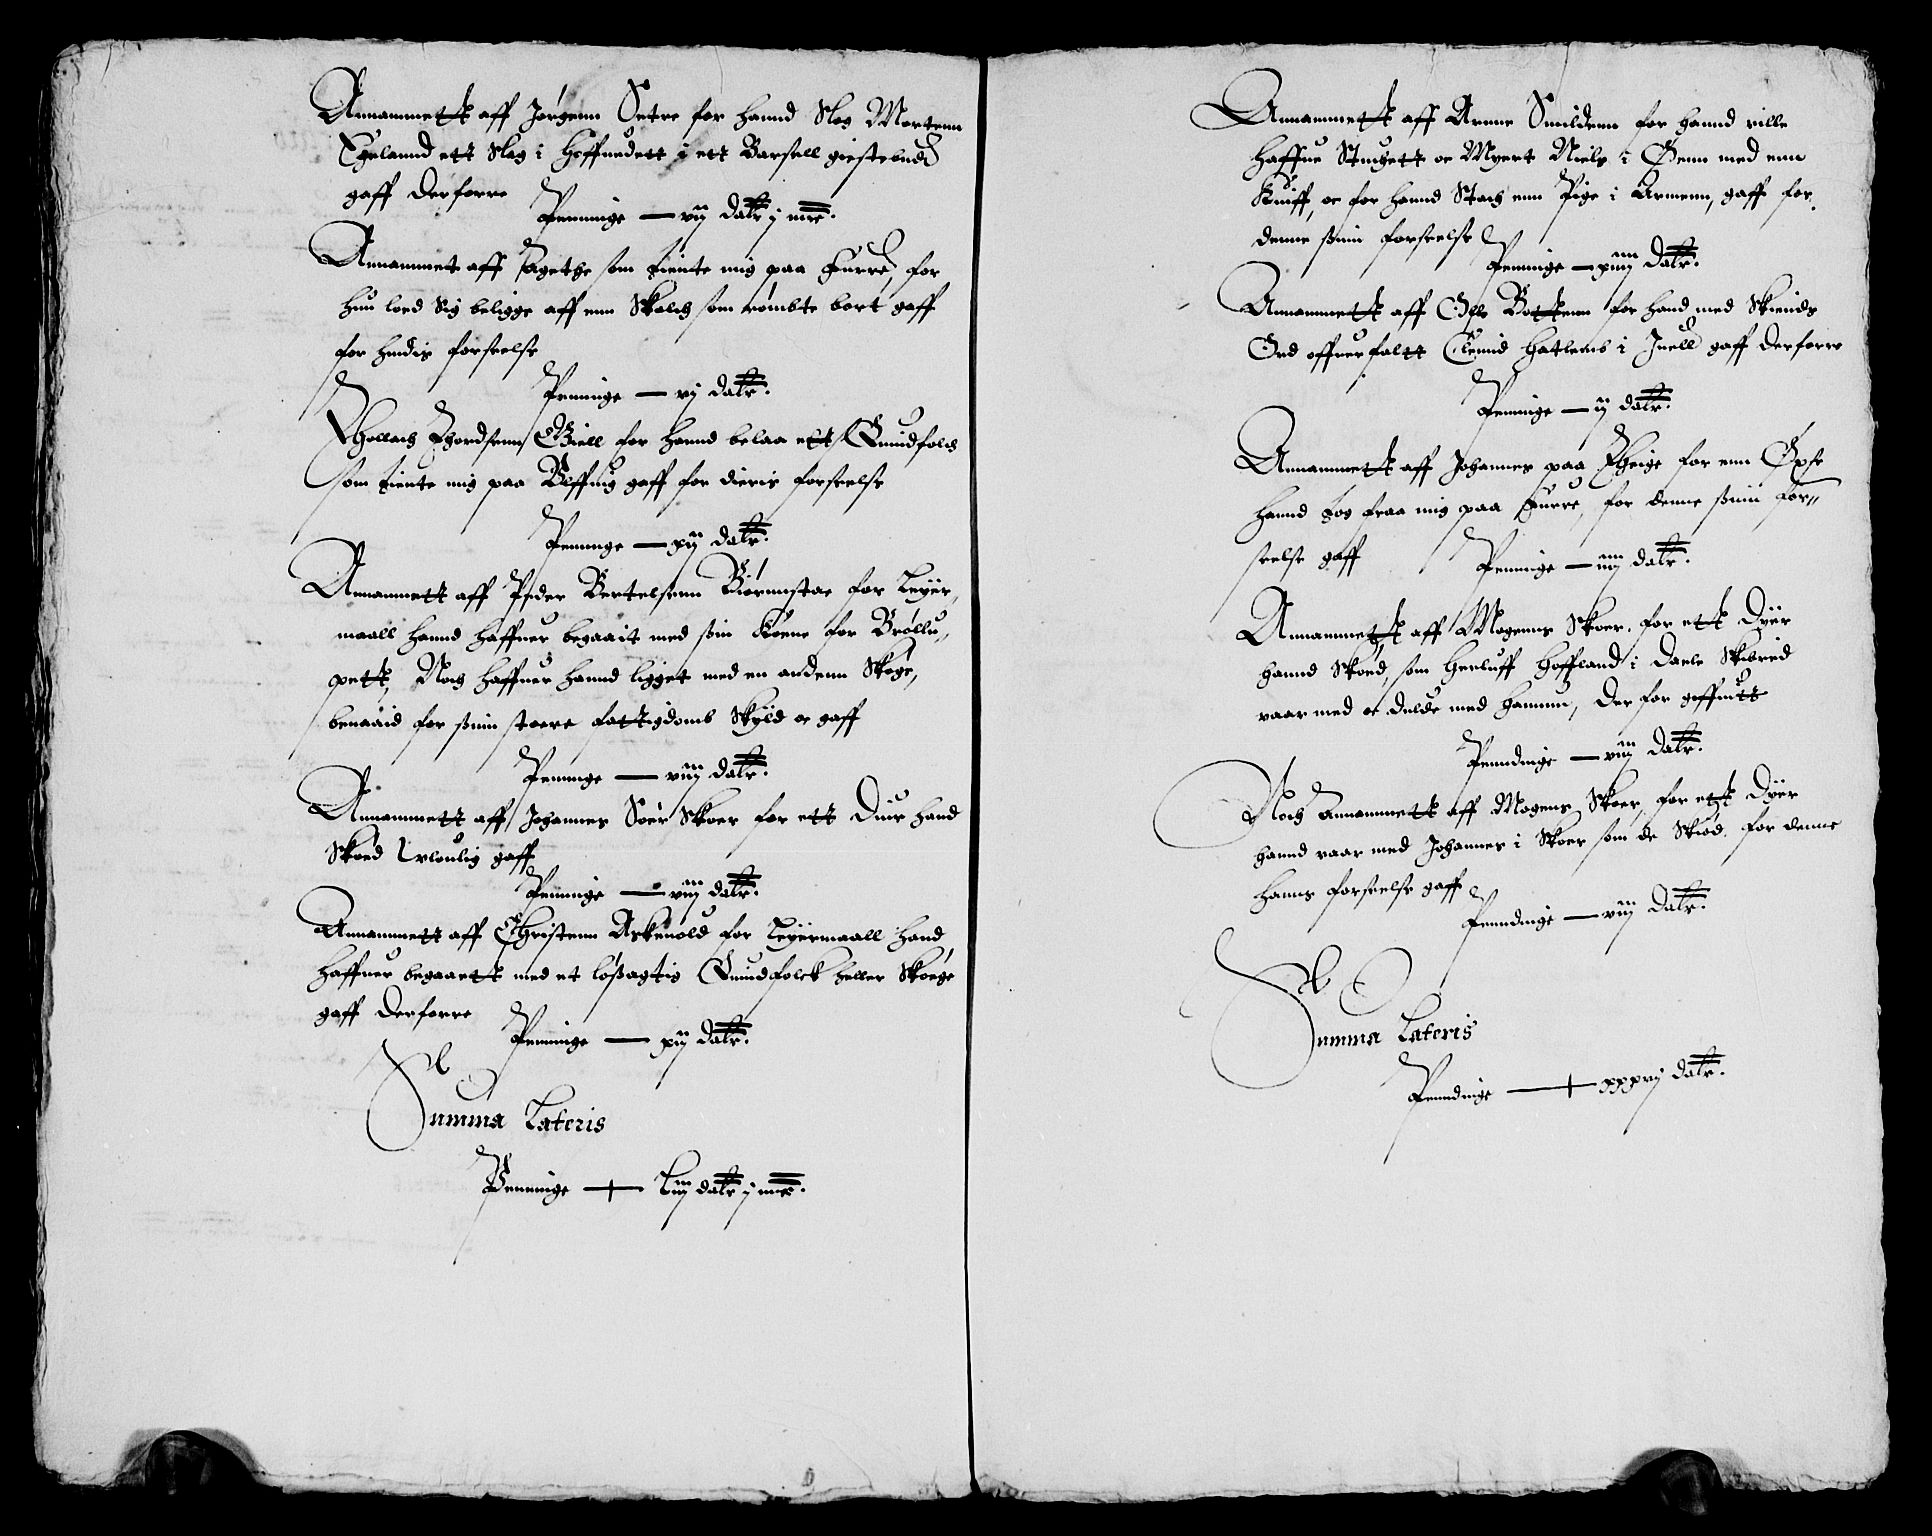 Annammett aff Jørgenn Setre for hannd Slog Mortenn
Egelannd ett Slag i Hoffuedett i ett Barsell giestebudd
gaff derforre
Penninge — vij dalr j mrc.
Annammet aff Agethe som tiente mig paa Furre, for
hun loed Sig beligge aff enn Skalch som rømbte bort gaff
for hindis forseelse
Penninge — vj dalr.
Thollach Thordsenn Giell for hannd belaa ett Quindfolch
som tiente mig paa gaff for dieris forseelse
Penninge — xij dalr.
Annammett aff Peder Bertelsenn Biørnnstae for Leyer,
maall hannd haffuer begaait med ssin Køene for Brøllu,,
pett, Noch haffuer hannd ligget med en andenn Skøge,
benaaid for ssinn stoere fattigdoms Skyld oc gaff
Penninge — viij dalr.
Annammett aff Johannes Sør Skoer for ett Diur hand
Skoed Vloulig gaff
Penninge — viij dalr.
Annammett aff Christenn Askeuold for Leyermaall hand
haffuer begaaett med et løssagtig Quindfolck heller Skøege
gaff derforre
Penninge — xij dalr.
Summa Lateris
Penninge — Liij dalr j mrc.
Annammett aff Arnne Smildenn for hannd ville
haffue Stuchett oc Myert Niels i Øenn med enn
Kniff, oc for hannd Stach enn Pige i Armenn, gaff for
denne ssinn forseelse
Penninge — xiiij dalr.
Annammett aff Oele Bottenn for hand med Skiends
Ord offuerfaltt Clemid Hatlems i Juell gaff derforre
Penninge — ij dalr.
Annammett aff Johannes paa Theige for enn Øxse
hannd tog fraa mig paa Furre, for denne ssinn for,,
seelse gaff
Penninge — iiij dalr.
Annammett aff Mogenns Skoer, for ett Dyer
hannd Skoed, som Herluff Hoffland i Daele Skibred
vaar med oc dulde med hannum, Der for geffuett
Penndinge — viij dalr.
Noch annammett aff Mogens Skoer, for ett Dyer
hannd vaar med Johannes i Skoer som de Skiød, for denne
hanns forseelse gaff
Penndinge — viij dalr.
Summa Lateris
Penndinge — xxxvj dalr.